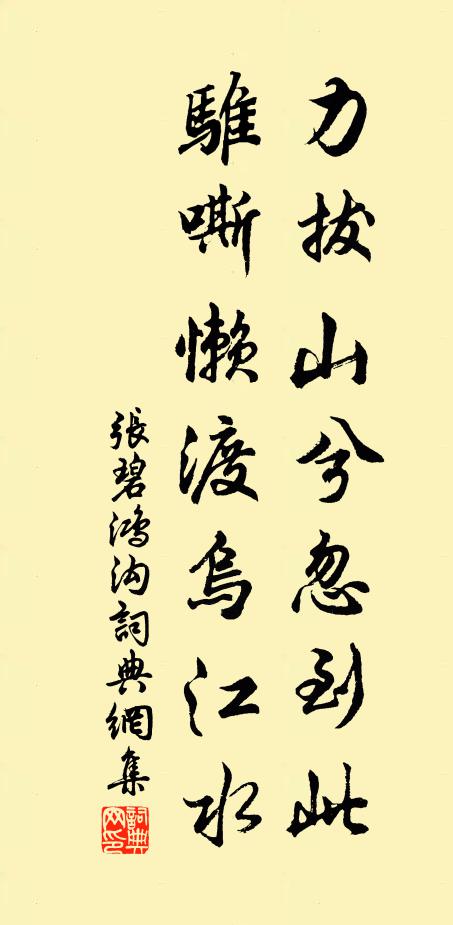 力拔山兮忽到此
騅嘶懶渡烏江水
張碧鴻沟詞典網集
詞典
网印